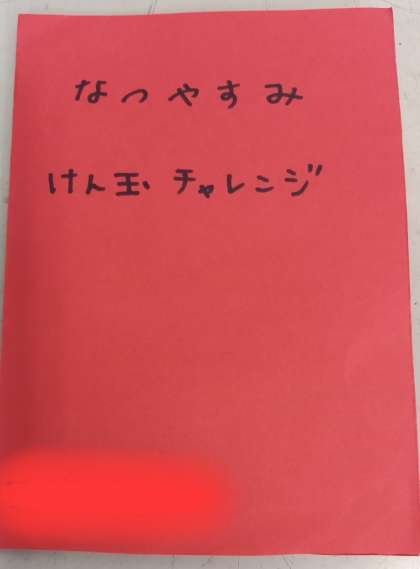 なつやすみ
けん玉チャレンジ